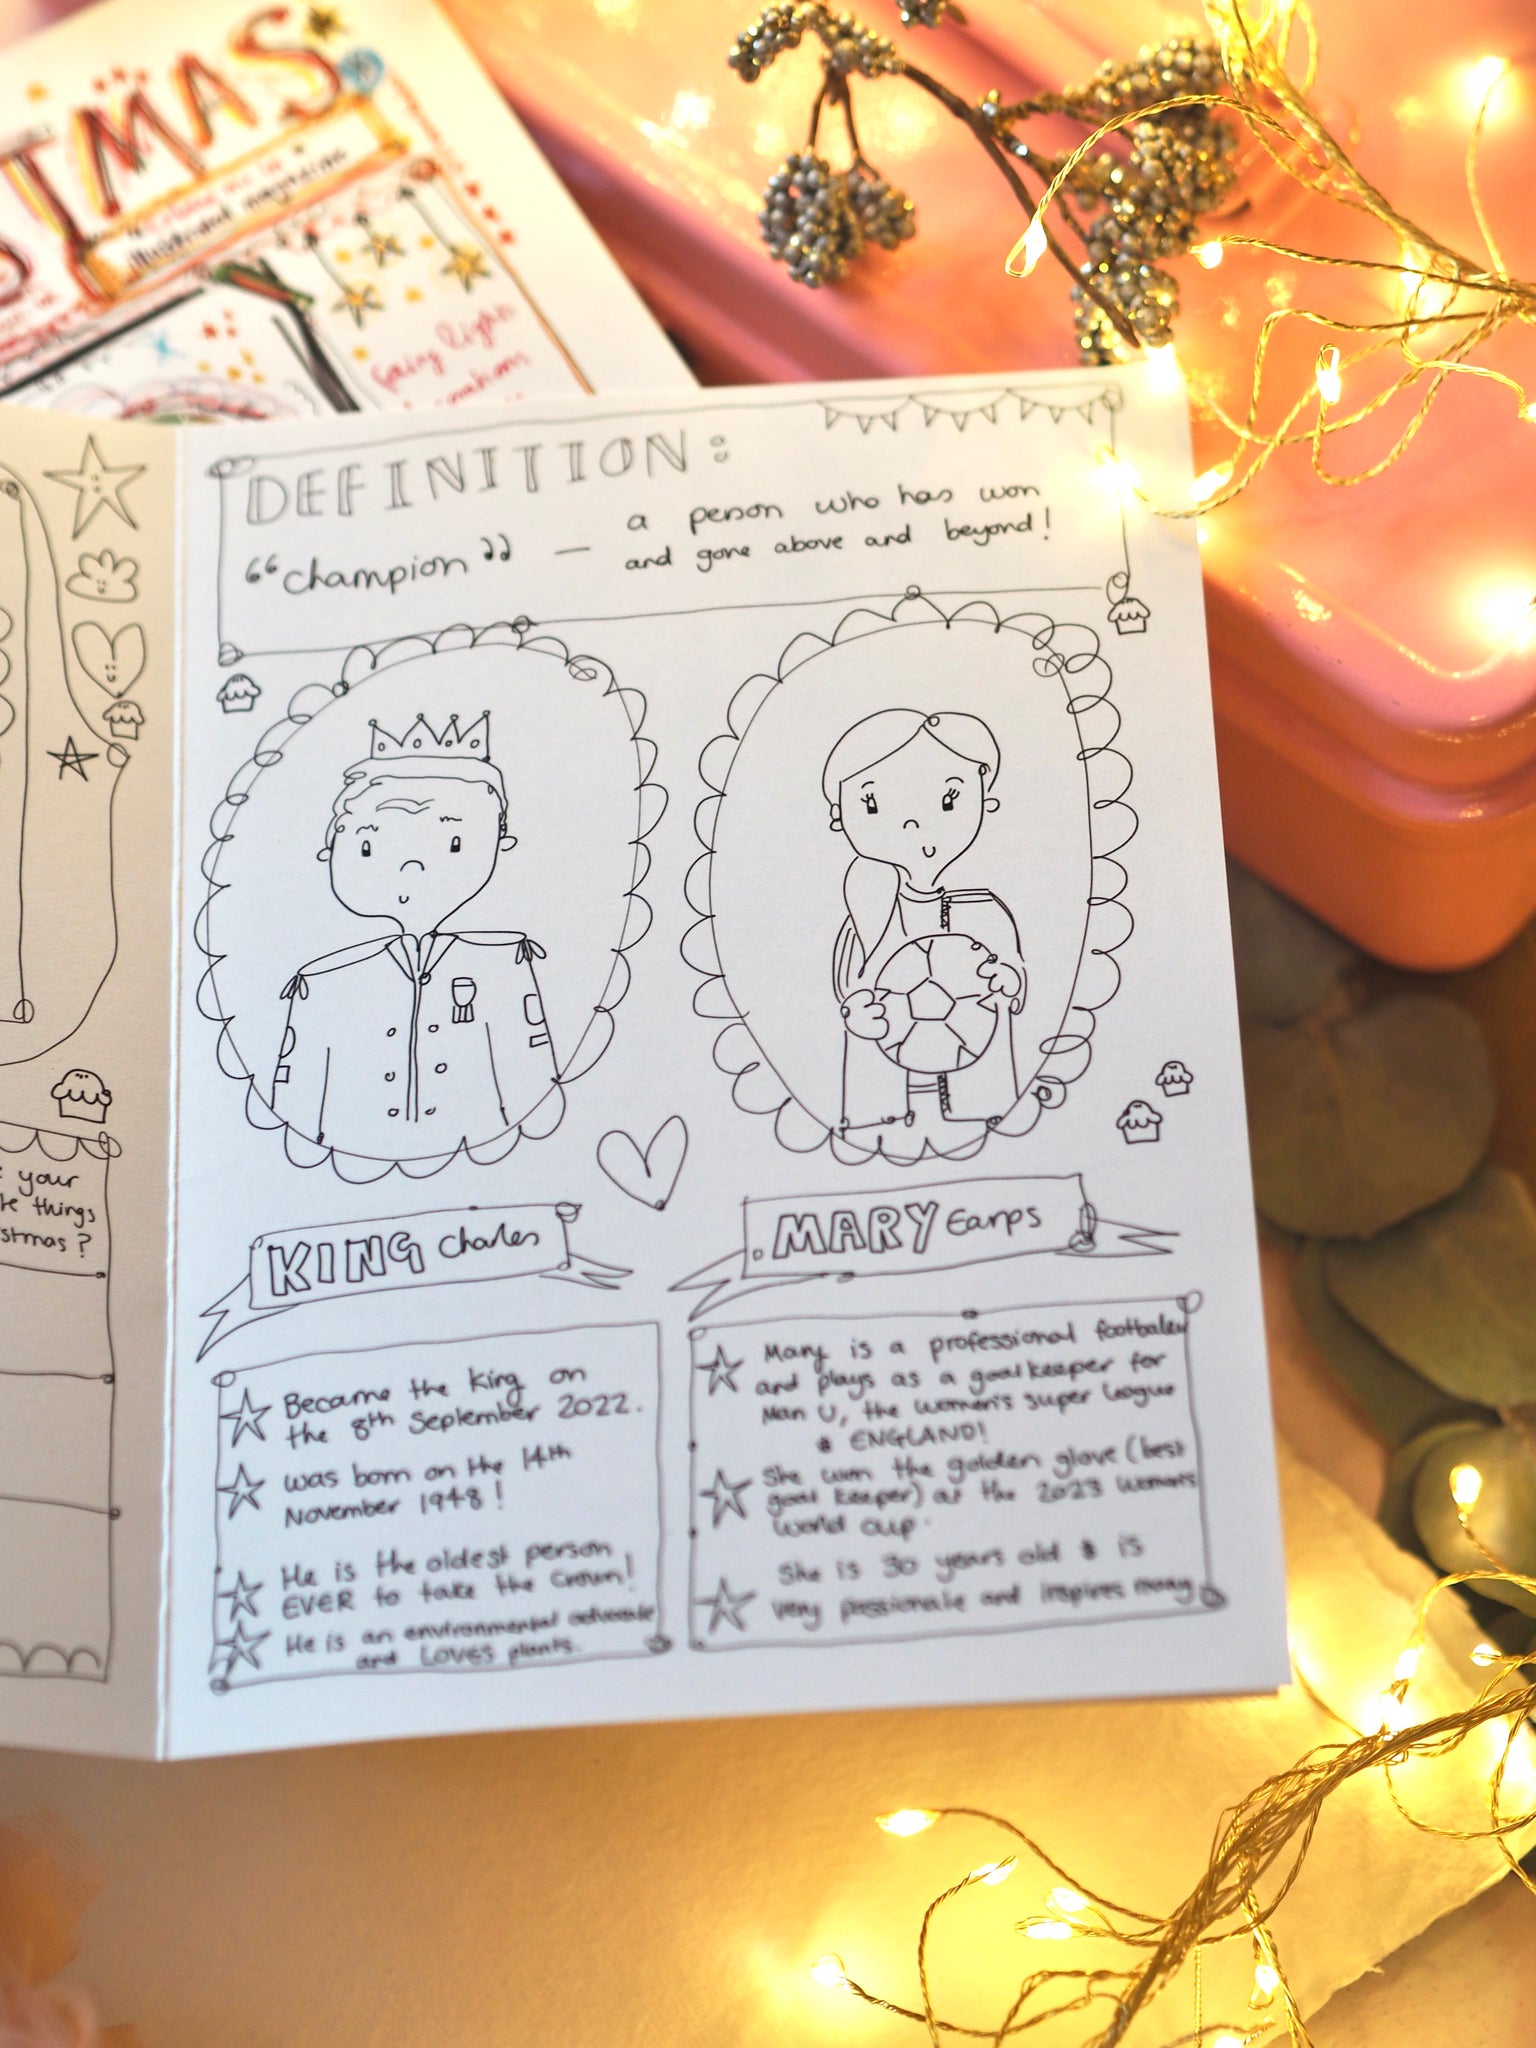 TMAS
"colour me in"
Illustrated magazine
fairy light
DEFINITION:
"champion" — a person who has won
and gone above and beyond!
your
things
stmas?
KING Charles
MARY Earps
Became the king on
the 8th September 2022.
was born on the 14th
November 1948!
He is the oldest person
EVER to take the crown!
He is an environmental advocate
and LOVES plants.
Mary is a professional footballer
and plays as a goalkeeper for
Man U, the women's super league
& ENGLAND!
She won the golden glove (best
goal keeper) at the 2023 women's
world cup.
She is 30 years old & is
very passionate and inspires many